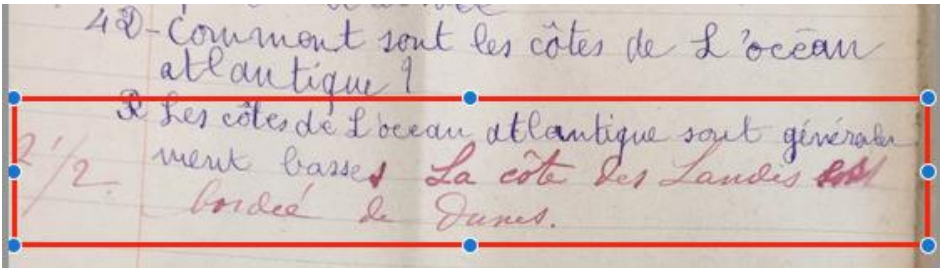 4 D - Comment sont les côtes de L'océan
atlantique ?
R Les côtes de L'océan atlantique sont générale
ment basses La côte des Landes est
2 1/2 bordée de Dunes.